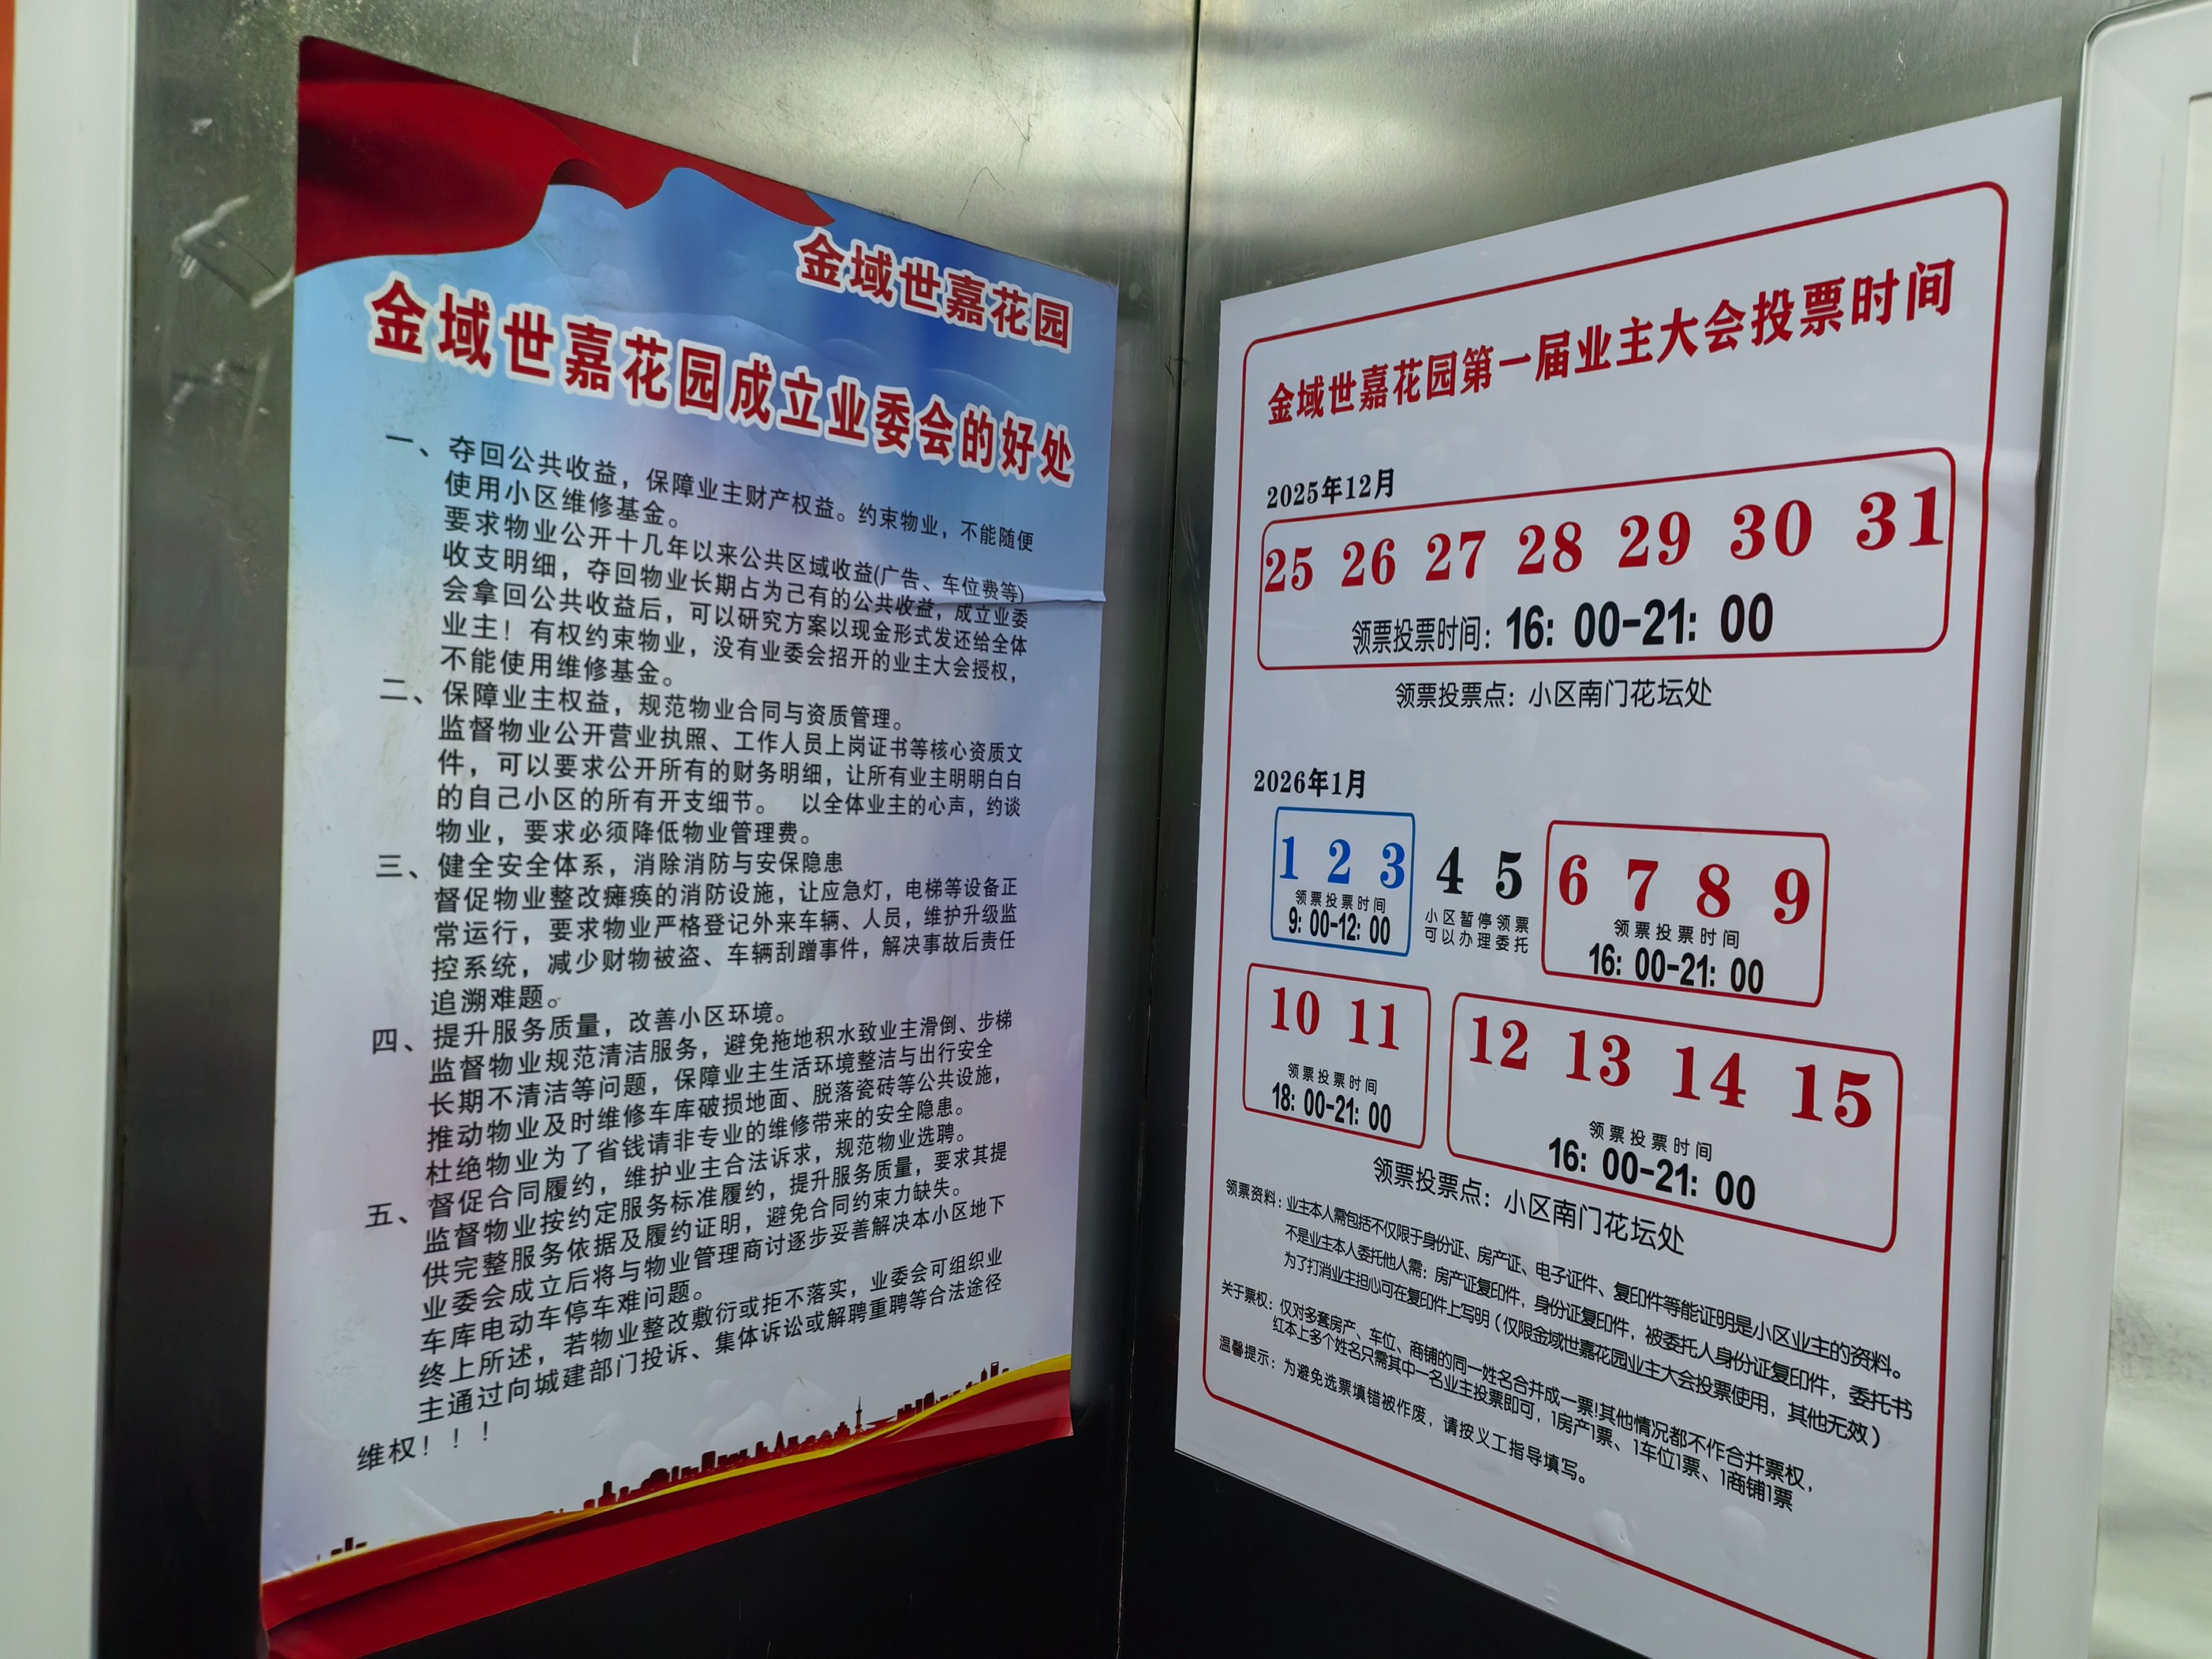 金域世嘉花园
金域世嘉花园成立业委会的好处
一、夺回公共收益，保障业主财产权益。约束物业，不能随便
使用小区维修基金。
要求物业公开十几年以来公共区域收益(广告、车位费等)
收支明细，夺回物业长期占为己有的公共收益，成立业委
会拿回公共收益后，可以研究方案以现金形式发还给全体
业主！有权约束物业，没有业委会招开的业主大会授权，
不能使用维修基金。
二、保障业主权益，规范物业合同与资质管理。
监督物业公开营业执照、工作人员上岗证书等核心资质文
件，可以要求公开所有的财务明细，让所有业主明明白白
的自己小区的所有开支细节。 以全体业主的心声，约谈
物业，要求必须降低物业管理费。
三、健全安全体系，消除消防与安保隐患
督促物业整改瘫痪的消防设施，让应急灯，电梯等设备正
常运行，要求物业严格登记外来车辆、人员，维护升级监
控系统，减少财物被盗、车辆刮蹭事件，解决事故后责任
追溯难题。
四、提升服务质量，改善小区环境。
监督物业规范清洁服务，避免拖地积水致业主滑倒、步梯
长期不清洁等问题，保障业主生活环境整洁与出行安全
推动物业及时维修车库破损地面、脱落瓷砖等公共设施，
杜绝物业为了省钱请非专业的维修带来的安全隐患。
五、督促合同履约，维护业主合法诉求，规范物业选聘。
监督物业按约定服务标准履约，提升服务质量，要求其提
供完整服务依据及履约证明，避免合同约束力缺失。
业委会成立后将与物业管理商讨逐步妥善解决本小区地下
车库电动车停车难问题。
终上所述，若物业整改敷衍或拒不落实，业委会可组织业
主通过向城建部门投诉、集体诉讼或解聘重聘等合法途径
维权！！！
金域世嘉花园第一届业主大会投票时间
2025年12月
25 26 27 28 29 30 31
领票投票时间：16：00-21：00
领票投票点：小区南门花坛处
2026年1月
1 2 3
领票投票时间
9：00-12：00
4 5
小区暂停领票
可以办理委托
6 7 8 9
领票投票时间
16：00-21：00
10 11
领票投票时间
18：00-21：00
12 13 14 15
领票投票时间
16：00-21：00
领票投票点：小区南门花坛处
领票资料：业主本人需包括不仅限于身份证、房产证、电子证件、复印件等能证明是小区业主的资料。
不是业主本人委托他人需：房产证复印件，身份证复印件，被委托人身份证复印件，委托书
为了打消业主担心可在复印件上写明（仅限金域世嘉花园业主大会投票使用，其他无效）
关于票权：仅对多套房产、车位、商铺的同一姓名合并成一票!其他情况都不作合并票权，
红本上多个姓名只需其中一名业主投票即可，1房产1票、1车位1票、1商铺1票
温馨提示：为避免选票填错被作废，请按义工指导填写。